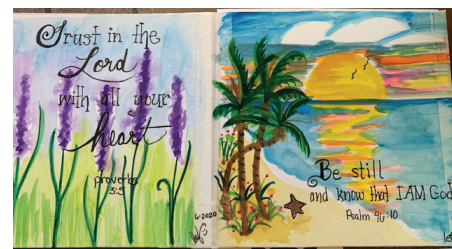 Trust in the
Lord
with all your
heart
proverbs
3:5
6-2020
Be still
and know that I AM God
Psalm 46:10